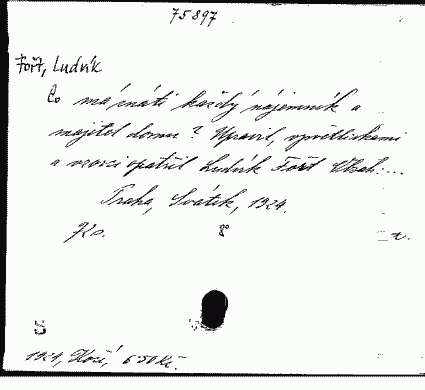 75897
Fořt, Ludvík
Co má znáti každý nájemník a
majitel domu? Upravil, vysvětlivkami
a vzorci opatřil Ludvík Fořt. Obsah:...
Praha, Svátek, 1924.
8°
1924, Kočí, 6·50 Kč.